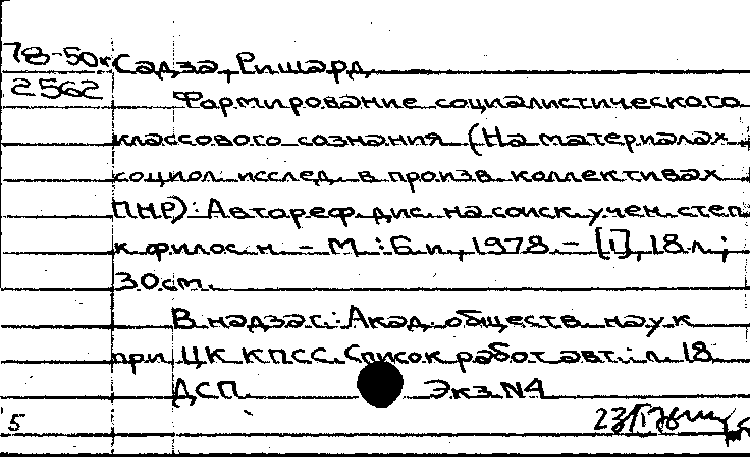 78-50к Садза, Ришард
2562
Формирование социалистического
классового сознания (На материалах
социол. исслед. в произв. коллективах
ПНР): Автореф. дис. на соиск. учен. степ.
к. филос. н. - М.: Б. и., 1978. - [1], 18 л.;
30 см.
В надзаг.: Акад. обществ. наук
при ЦК КПСС. Список работ авт.: л. 18
ДСП. Экз. N4
5